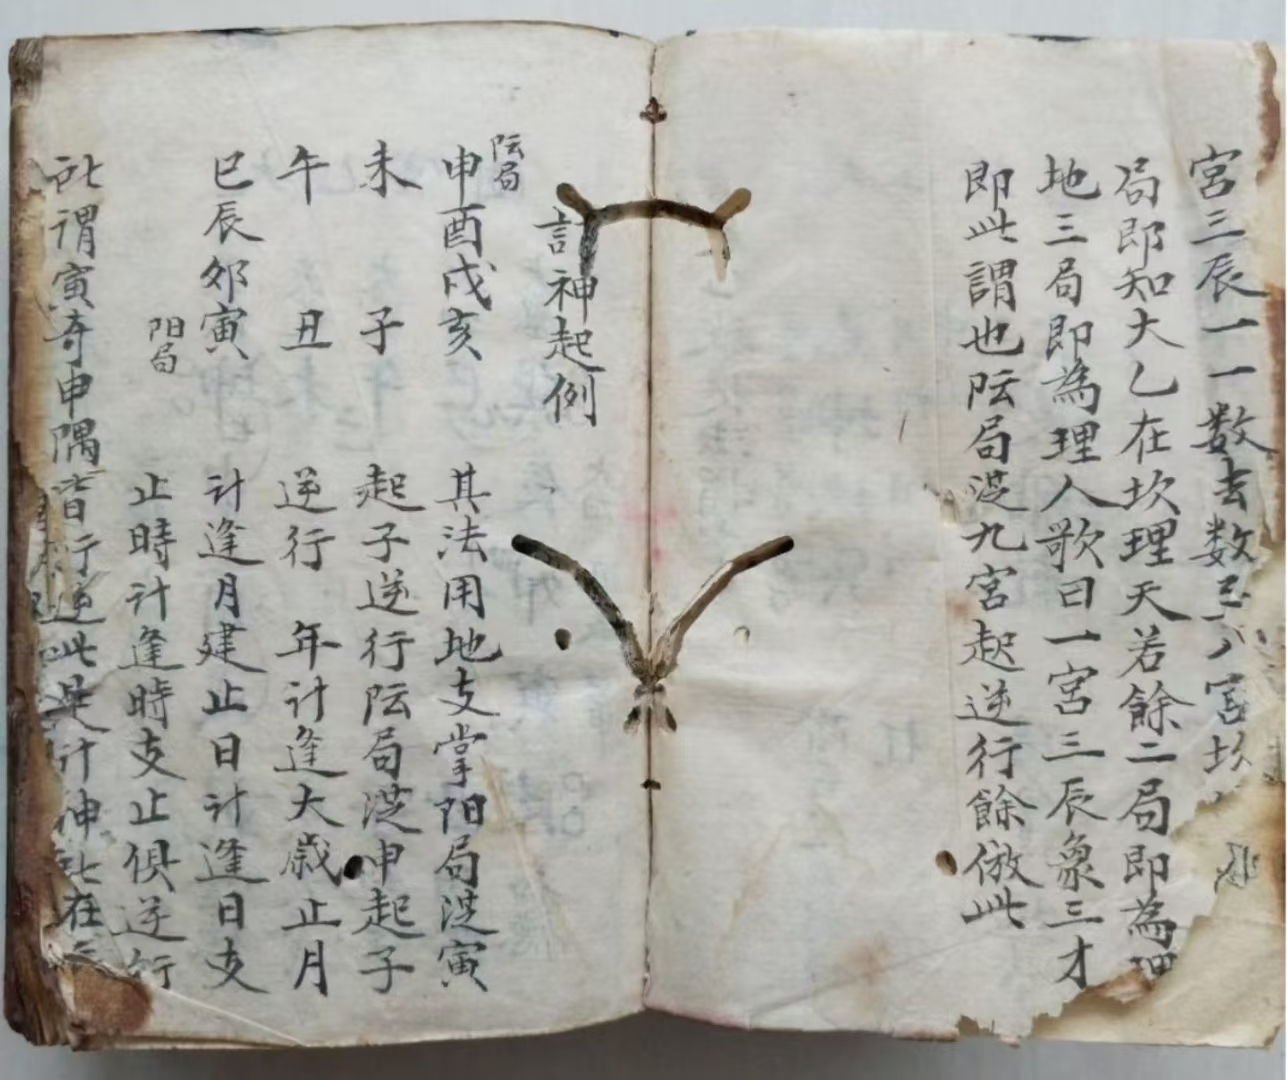 宮三辰一一数去数至八宮坎
局即知大乙在坎理天若餘二局即為理
地三局即為理人歌曰一宮三辰象三才
即此謂也阮局逆九宮起逆行餘倣此
計神起例
阮局
申酉戌亥 其法用地支掌阳局逆寅
未 子 起子逆行阮局逆申起子
午 丑 逆行 年計逢大歲止月
巳辰卯寅 计逢月建止日计逢日支
阳局
止時计逢時支止俱逆行
謂寅奇申隅皆行逆此是计神在